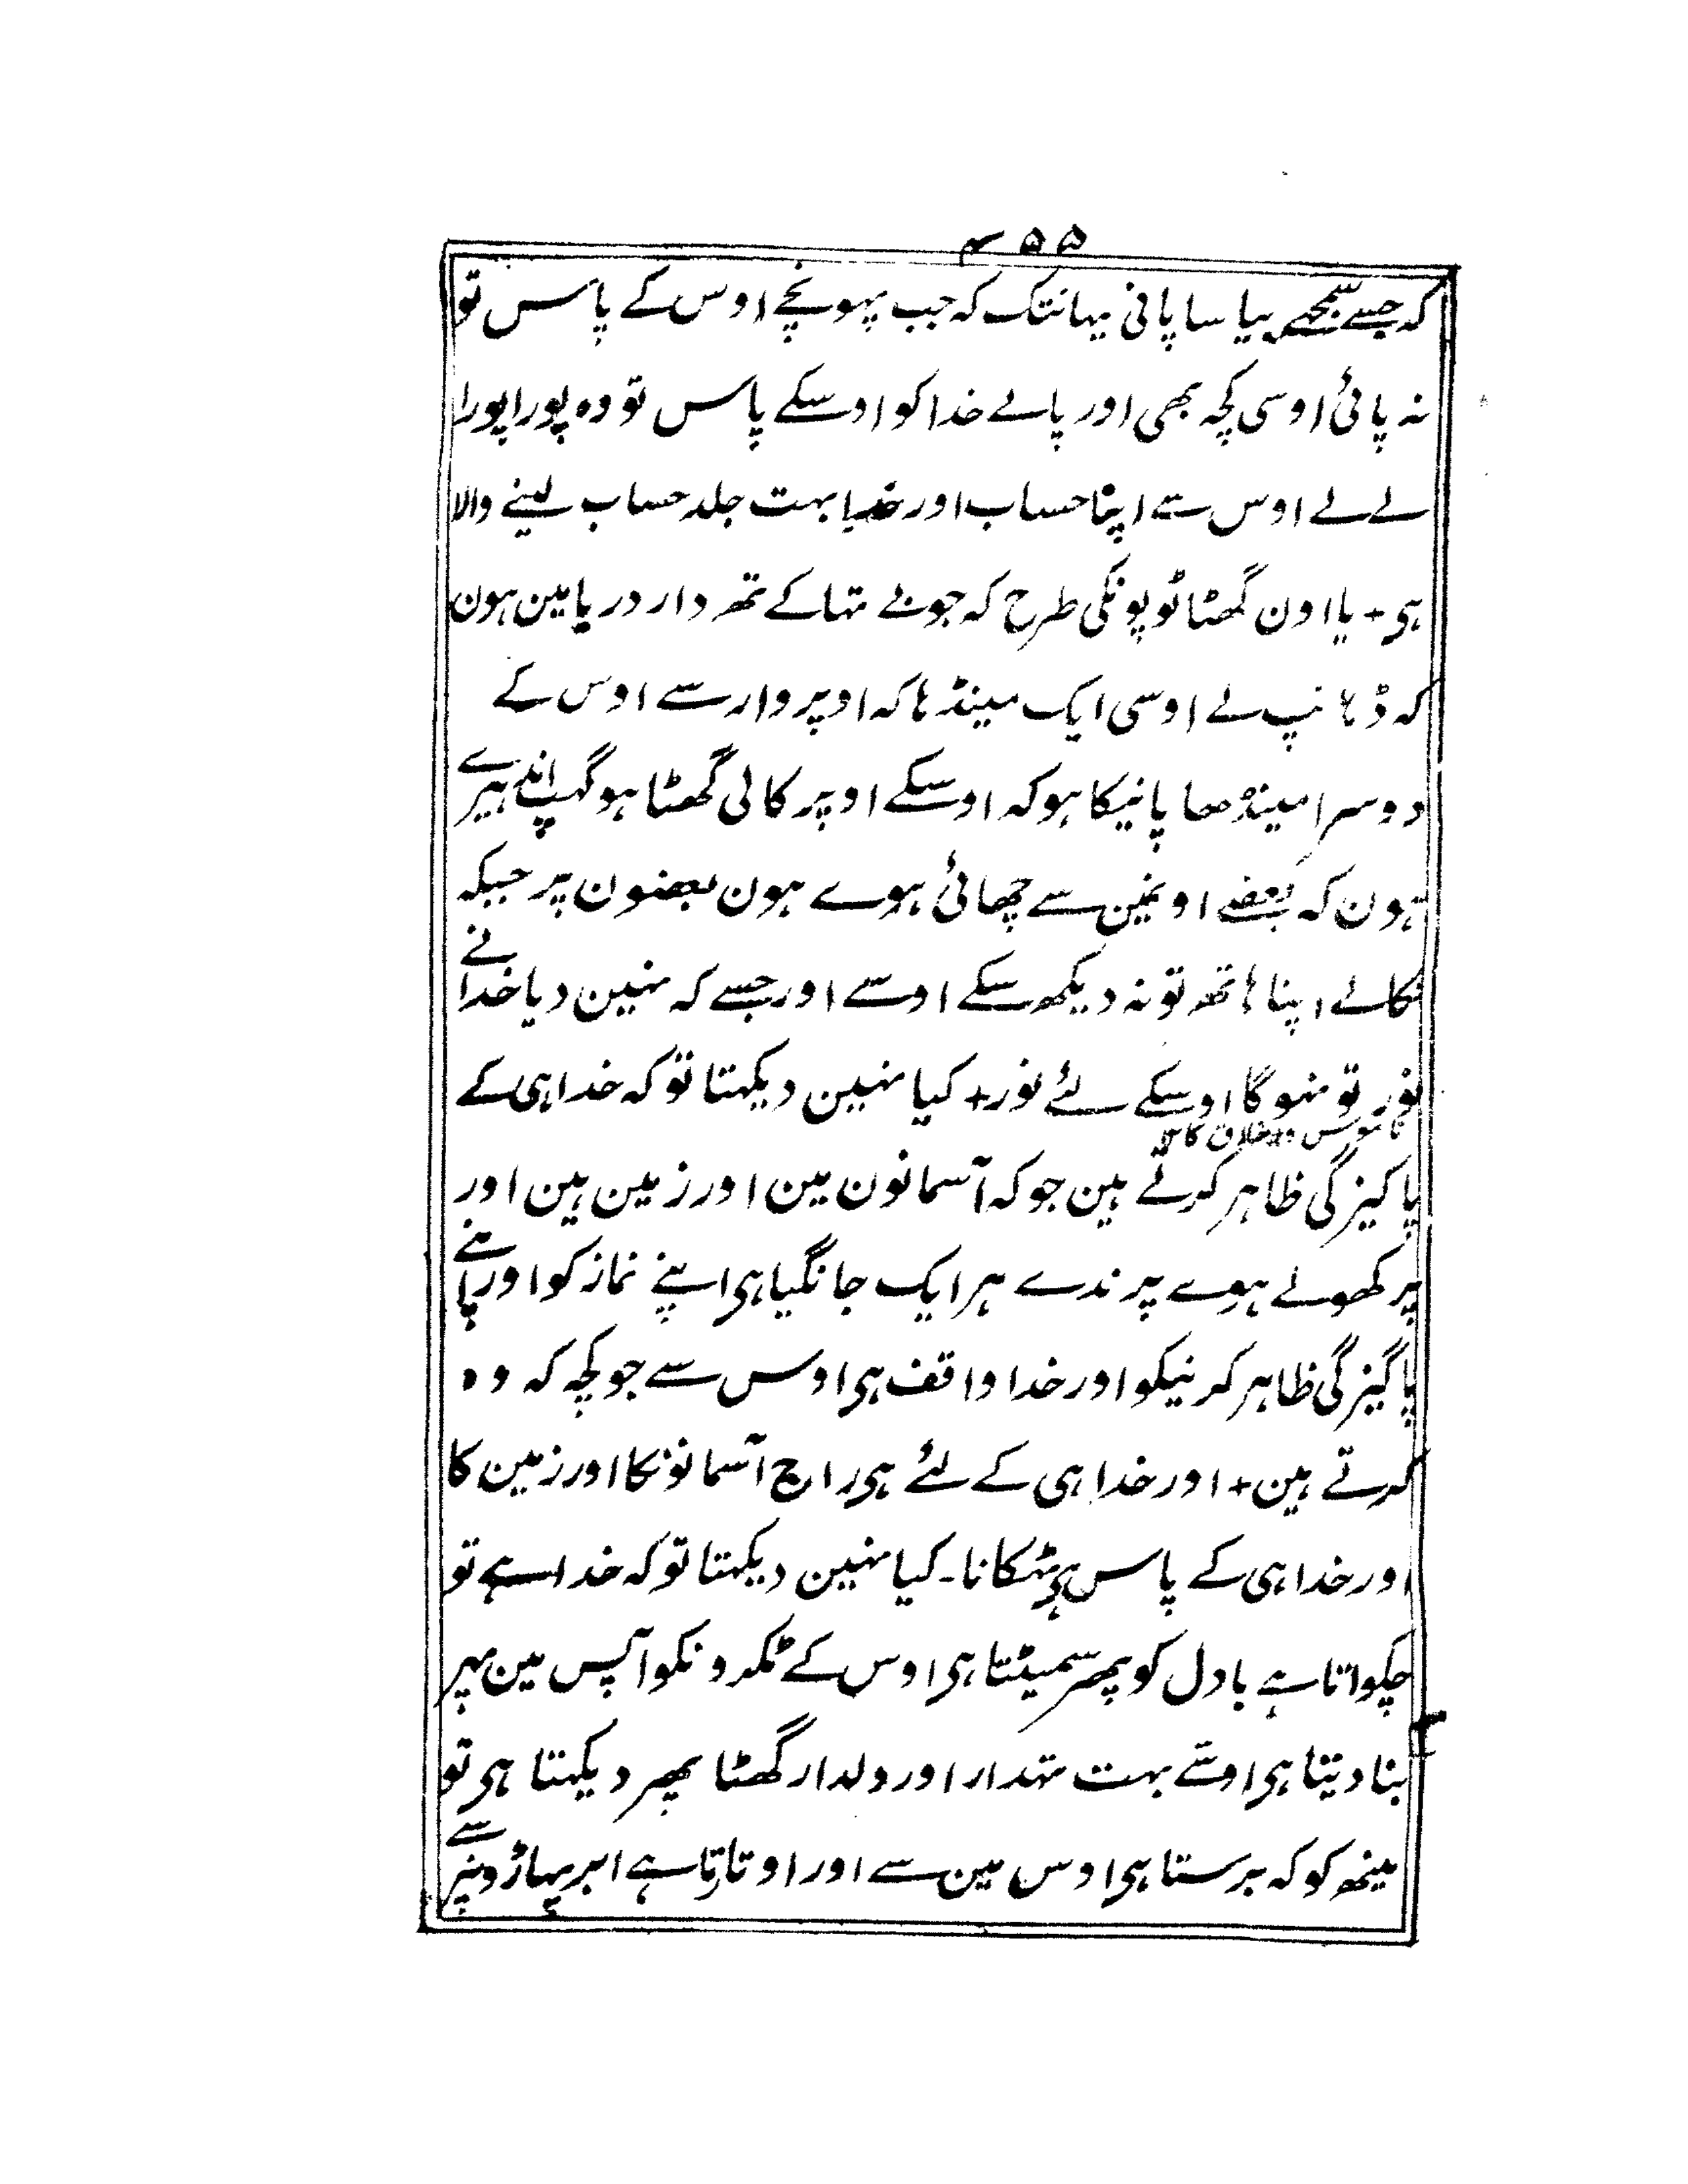 ۴۵۵
کہ جسے سمجھے پیاسا پانی یہانتک کہ جب پہونچے اوس کے پاس تو
نہ پائی اوسی کچہ بھی اور پالے خدا کو اوسکے پاس تو وہ پورا پورا
لے لے اوس سے اپنا حساب اور خدا بہت جلد حساب لینے والا
ہی + یا اون گھٹا ٹوپونکی طرح کہ جو بے تہا کے تھردار دریا مین ہون
کہ ڈہانپ لے اوسی ایک مینڈہا کہ اوپر وار سے اوس کے
دوسرا مینڈھا پانیکا ہو کہ اوسکے اوپر کالی گھٹا ہو گہپ اندہیرے
ہون کہ بعضے اونمین سے چھائی ہوے ہون بعضون پر جبکہ
نکالے اپنا ہاتھ تو نہ دیکھ سکے اوسے اور جسے کہ نہین دیا خدا نے
نور تو نہوگا اوسکے لئے نور + کیا نہین دیکہتا تو کہ خدا ہی کے
پاکیزگی ظاہر کرتے ہین جو کہ آسمانون مین اور زمین ہین اور
پر کھولے ہوے پرندے ہر ایک جانگیا ہی اپنے نماز کو اور اپنے
پاگیزگی ظاہر کرنیکو اور خدا واقف ہی اوس سے جو کچہ کہ وہ
کرتے ہین + اور خدا ہی کے لئے ہی راج آسمانونکا اور زمین کا
اور خدا ہی کے پاس ہی ٹہکانا ـ کیا نہین دیکہتا تو کہ خدا ہے تو
چکواتا ہے بادل کو پھر سمیٹتا ہی اوس کے ٹکڑونکو آپس مین پہر
بنا دیتا ہی اوسے بہت تہدار اور دلدار گھٹا پھر دیکہتا ہی تو
مینھ کو کہ برستا ہی اوس مین سے اور اوتارتا ہے ابر پہاڑونپر سے